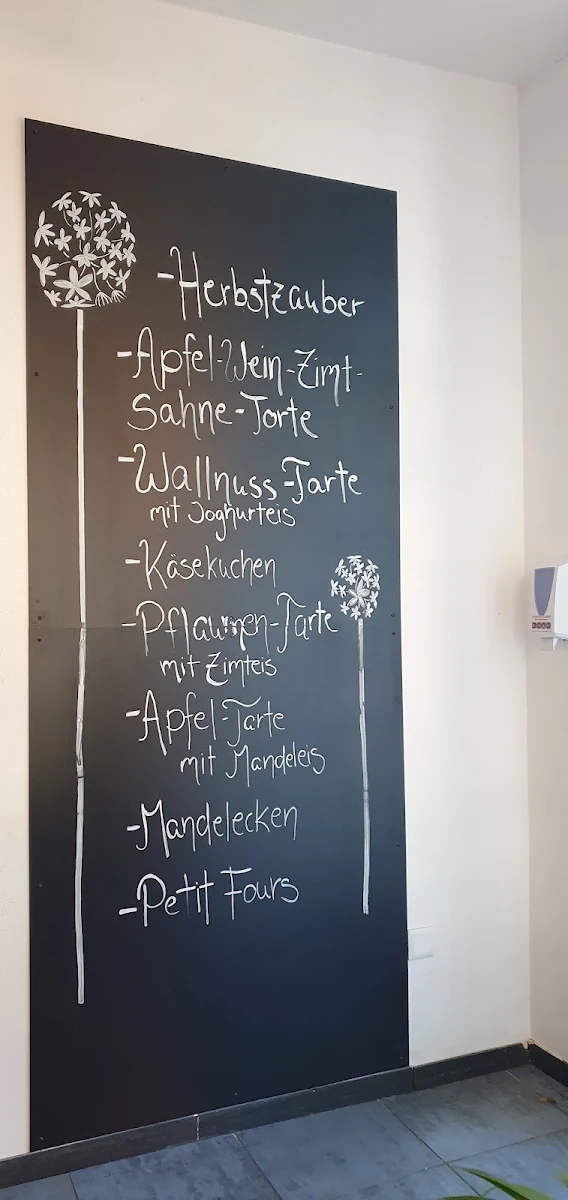 -Herbstzauber
-Apfel-Wein-Zimt-
Sahne-Torte
-Wallnuss-Tarte
mit Joghurteis
-Käsekuchen
-Pflaumen-Tarte
mit Zimteis
-Apfel-Tarte
mit Mandeleis
-Mandelecken
-Petit Fours